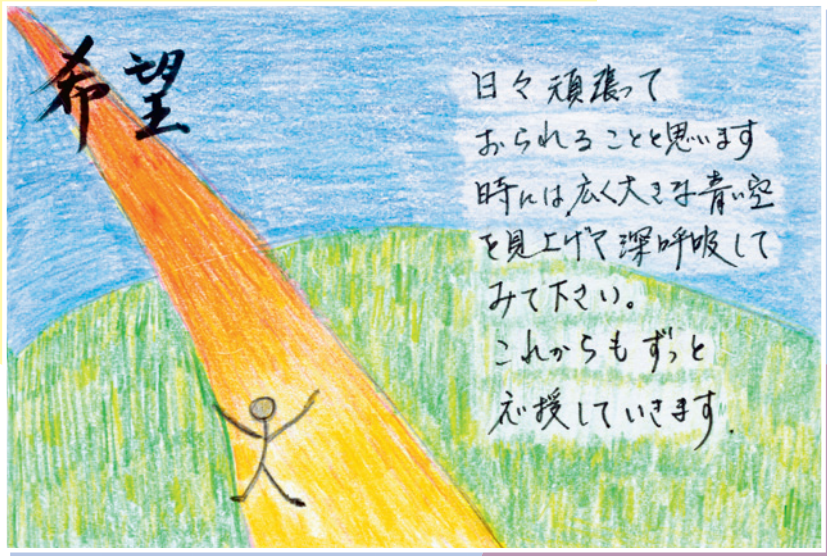 希望
日々頑張って
おられることと思います
時には広く大きな青い空
を見上げて深呼吸して
みて下さい。
これからもずっと
応援していきます.